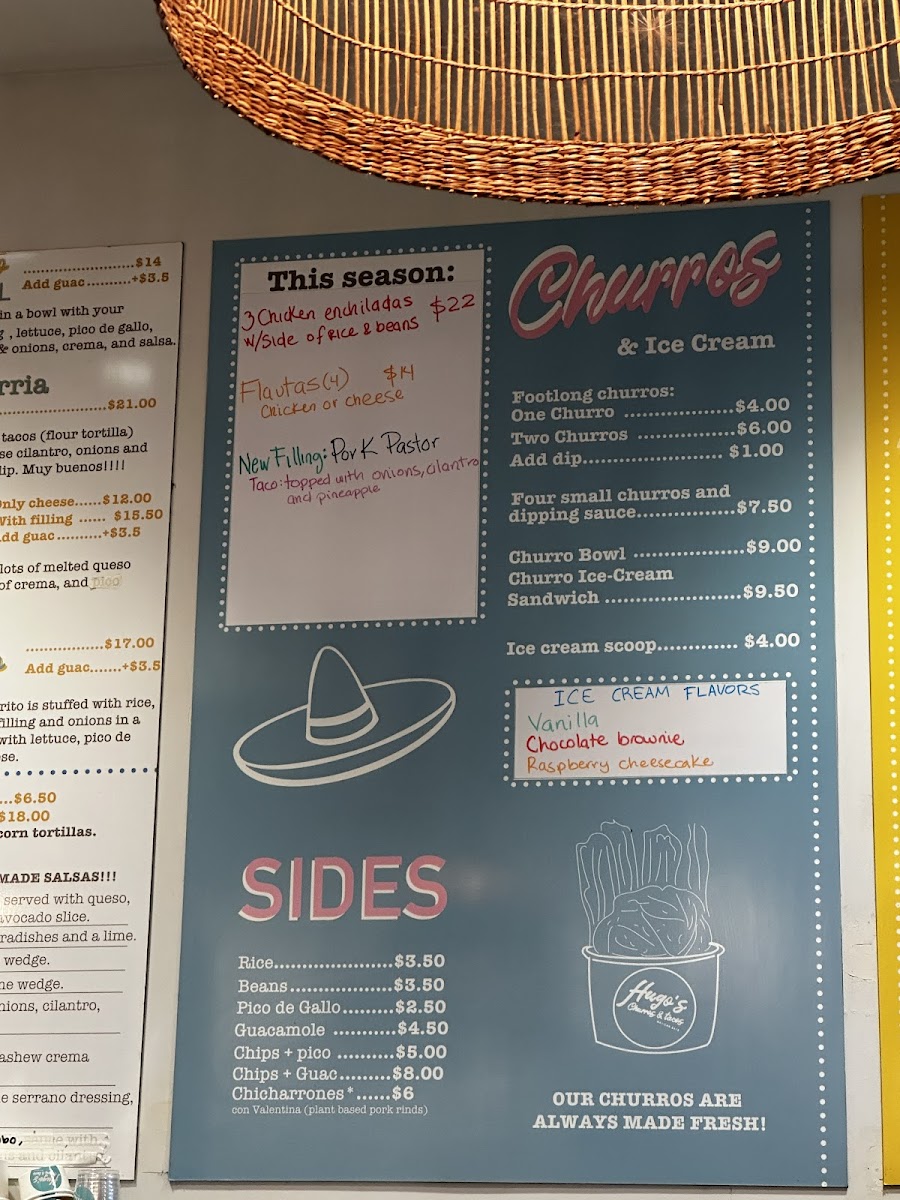 ........................$14
Add guac..........+$3.5
in a bowl with your
, lettuce, pico de gallo,
& onions, crema, and salsa.
rria
........................$21.00
tacos (flour tortilla)
se cilantro, onions and
dip. Muy buenos!!!!
Only cheese......$12.00
With filling ...... $15.50
Add guac..........+$3.5
lots of melted queso
of crema, and pico
.................$17.00
Add guac.......+$3.5
rito is stuffed with rice,
filling and onions in a
with lettuce, pico de
se.
...$6.50
$18.00
corn tortillas.
MADE SALSAS!!!
served with queso,
avocado slice.
radishes and a lime.
wedge.
ne wedge.
nions, cilantro,
ashew crema
e serrano dressing,
obo,
This season:
3 Chicken enchiladas $22
w/side of Rice & beans
Flautas (4) $14
Chicken or cheese
New Filling: Pork Pastor
Taco: topped with onions, cilantro
and pineapple
Churros
& Ice Cream
Footlong churros:
One Churro ................$4.00
Two Churros ..............$6.00
Add dip..................... $1.00
Four small churros and
dipping sauce..............$7.50
Churro Bowl .................$9.00
Churro Ice-Cream
Sandwich .....................$9.50
Ice cream scoop............. $4.00
ICE CREAM FLAVORS
Vanilla
Chocolate brownie
Raspberry cheesecake
SIDES
Rice.....................$3.50
Beans...................$3.50
Pico de Gallo.........$2.50
Guacamole ...........$4.50
Chips + pico ..........$5.00
Chips + Guac.........$8.00
Chicharrones *......$6
con Valentina (plant based pork rinds)
Hugo's
Churros & tacos
OUR CHURROS ARE
ALWAYS MADE FRESH!